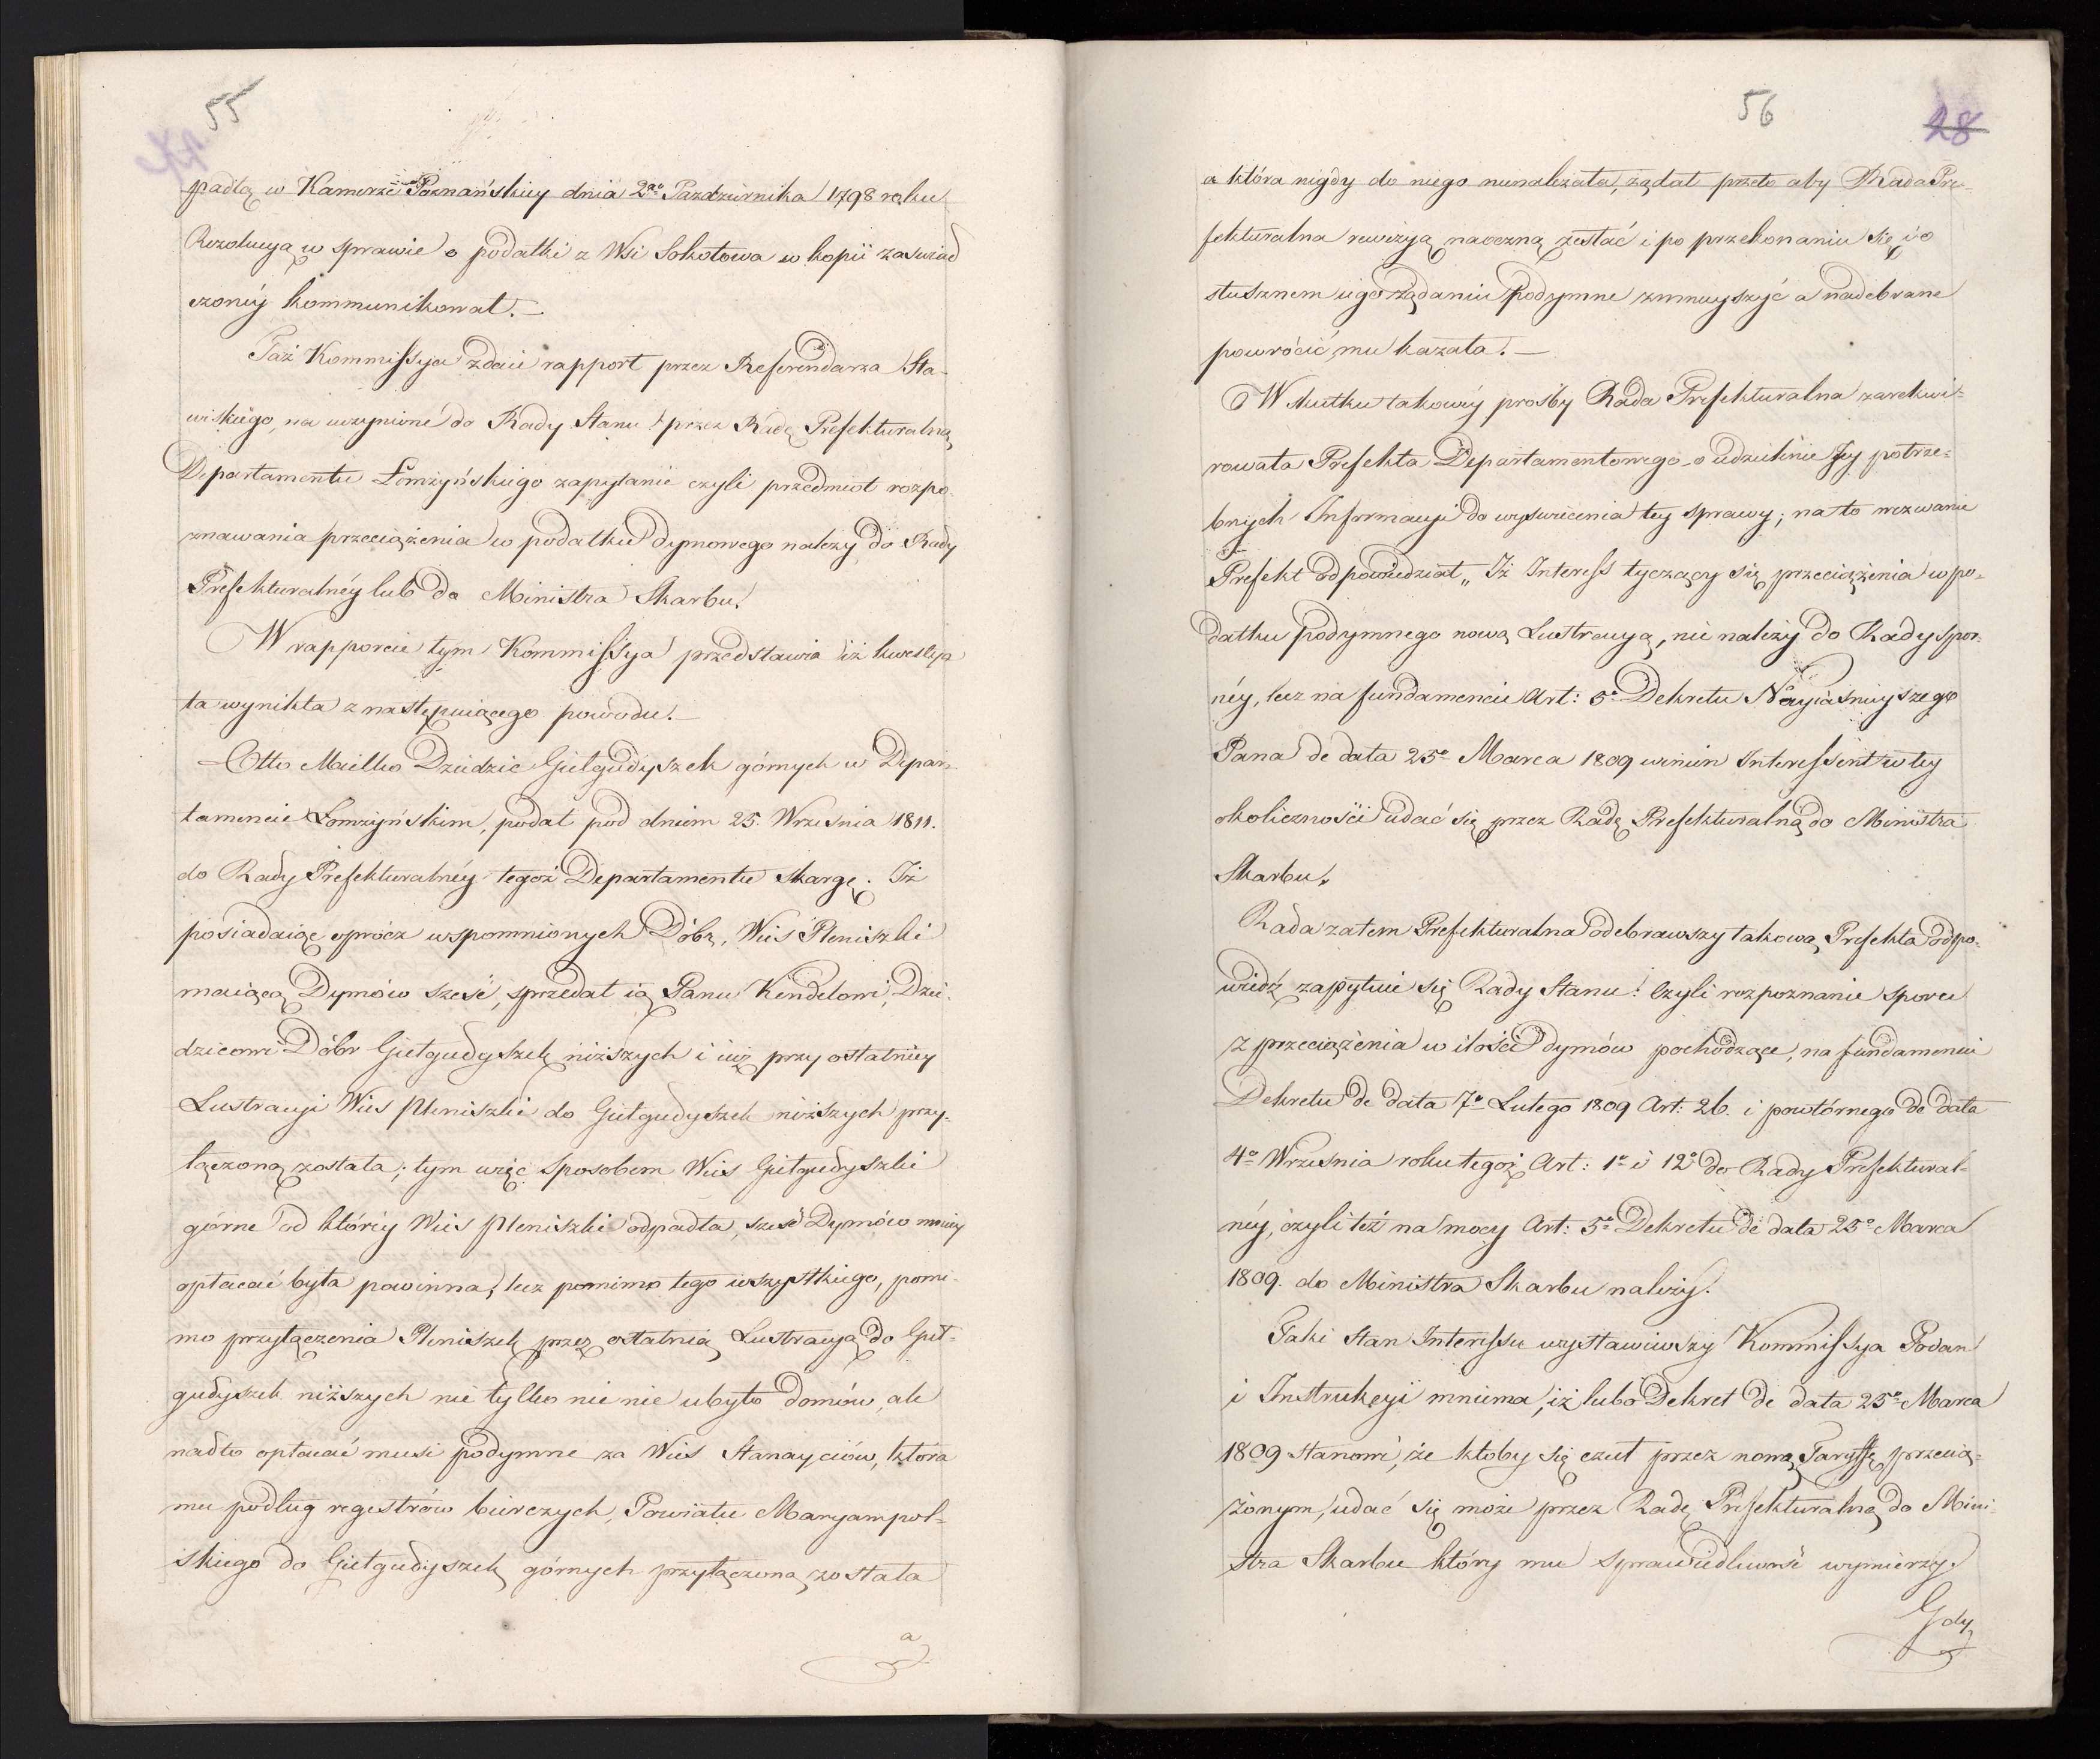 55
padłą w Kamerze Poznańskiey dnia 2go Pazdziernika 1798 roku
Rezolucyą w sprawie o podatki z Wsi Sokołowa w kopii zaswiad
czonéy kommunikował. —
Taż Kommissya zdaie rapport przez Referendarza Sta-
wiskiego, na uczynione do Rady Stanu przez Radę Prefekturalną
Departamentu Łomżyńskiego zapytanie czyli przedmiot rozpo-
znawania przeciążenia w podatku dymowego należy do Rady
Prefekturalnéy lub do Ministra Skarbu.
W rapporcie tym Kommissya przedstawia iż kwestya
ta wynikła z następuiącego powodu. —
Otto Mielko Dziedzic Giełgudyszek górnych w Depar-
tamencie Łomżyńskim, podał pod dniem 25. Września 1811.
do Rady Prefekturalnéy tegoż Departamentu skargę. Iż
posiadaiąc oprócz wspomnionych Dóbr, Wieś Pleniszki
maiącą Dymów sześć, sprzedał ią Panu Kendelowi, Dzie-
dzicowi Dóbr Giełgudyszek niższych i iuż przy ostatniey
Lustracyi Wieś Pleniszki do Giełgudyszek niższych przy-
łączoną została; tym więc sposobem Wieś Giełgudyszki
górne od któréy Wieś Pleniszki odpadła, sześć Dymów mniey
opłacać była powinna, lecz pomimo tego wszystkiego, pomi-
mo przyłączenia Pleniszek przez ostatnią Lustracyą do Gieł-
gudyszek niższych nie tylko nic nie ubyło domów, ale
nadto opłacać musi podymne za Wieś Stanayciów, która
mu podług regestrów biérczych, Powiatu Maryampol-
skiego do Giełgudyszek górnych przyłączona została
a
56
28
a która nigdy do niego nienależała, żądał przeto aby Rada Pre-
fekturalna rewizyą naoczną zesłać i po przekonaniu się i o
słusznem iego żądaniu podymne zmnieyszyć a nadebrane
powrócić mu kazała. —
W skutku takowéy prośby Rada Prefekturalna zarekwi-
rowała Prefekta Departamentowego o udzielenie Jey potrze-
bnych Informacyi do wyświecenia tey sprawy; na to wezwanie
Prefekt odpowiedział „ Iż Interess tyczący się przeciążenia w po-
datku podymnego nową Lustracyą, nie należy do Rady spor-
néy, lecz na fundamencie Art: 5o Dekretu Nayiaśnieyszego
Pana de data 25o Marca 1809 winien Interessent w tey
okoliczności udać się przez Radę Prefekturalną do Ministra
Skarbu „
Rada zatem Prefekturalna odebrawszy takową Prefekta odpo-
wiedź zapytuie się Rady Stanu: Czyli rozpoznanie sporu
z przeciążenia w ilości dymów pochodzące, na fundamencie
Dekretu de data 7o Lutego 1809 Art: 26. i powtórnego de data
4o Września roku tegoż Art: 1o i 12o do Rady Prefektural-
néy, czyli też na mocy Art: 5o Dekretu de data 25o Marca
1809. do Ministra Skarbu należy.
Taki stan Interessu wystawiwszy Kommissya Podań
i Instrukcyi mniema, iż lubo Dekret de data 25o Marca
1809 stanowi, że ktoby się czuł przez nową Taryffę przecią-
żonym, udać się może przez Radę Prefekturalną do Mini-
stra Skarbu który mu sprawiedliwość wymierzy.
Gdy